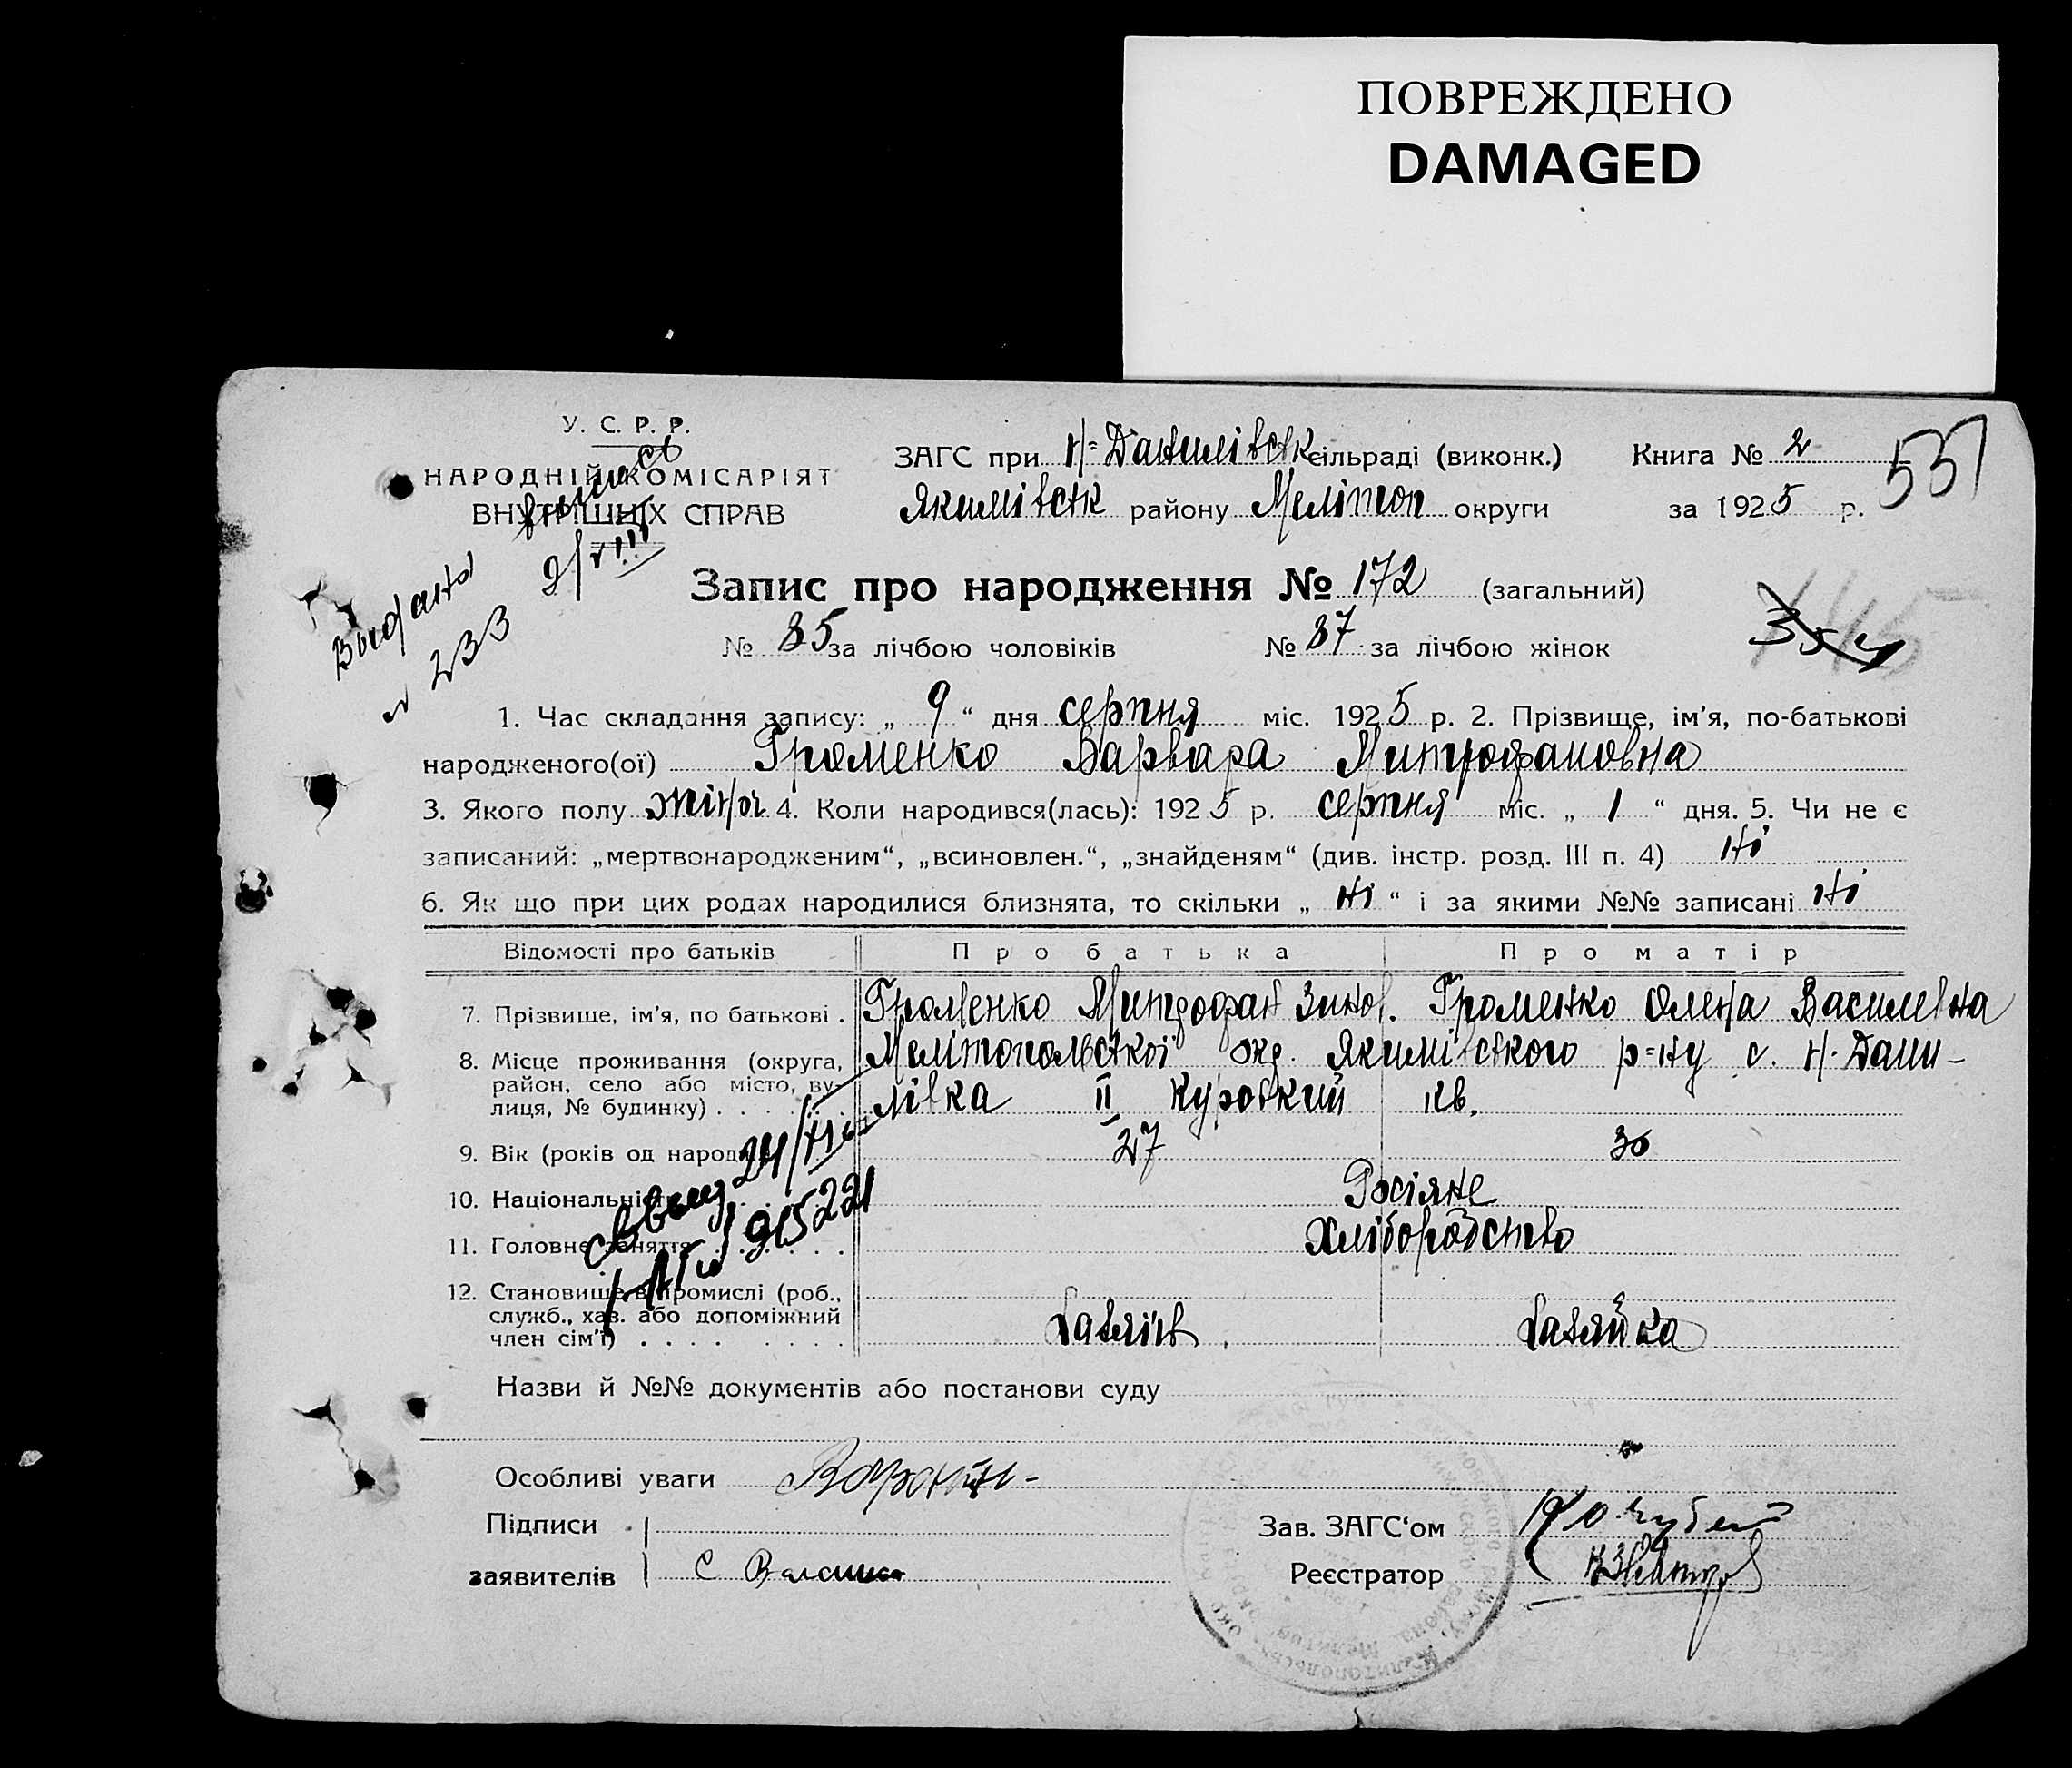 ПОВРЕЖДЕНО
DAMAGED
У. С. Р. Р.
НАРОДНІЙ КОМІСАРІЯТ
ВНУТРІШНІХ СПРАВ
ЗАГС при Н-Данилівськ сільраді (виконк.)
Якимівськ району Мелітоп округи
Книга № 2
за 1925 р.
537
Видана
№ 233
2/VIII
Запис про народження № 172 (загальний)
№ 85 за лічбою чоловіків № 87 за лічбою жінок
354
1. Час складання запису: „ 9 “ дня серпня міс. 1925 р. 2. Прізвище, ім'я, по-батькові
народженого(ої) Громенко Варвара Митрофановна
3. Якого полу жіноч 4. Коли народився(лась): 1925 р. серпня міс. „ 1 “ дня. 5. Чи не є
записаний: „мертвонародженим“, „всиновлен.“, „знайденям“ (див. інстр. розд. III п. 4) Ні
6. Як що при цих родах народилися близнята, то скільки „ Ні “ і за якими №№ записані Ні
Відомості про батьків Про батька Про матір
7. Прізвище, ім'я, по батькові . Громенко Митрофан Зинов. Громенко Олена Василевна
8. Місце проживання (округа, район, село або місто, вулиця, № будинку) . . . Мелітопольської окр. Якимівського р=ну с. Н. Дани-
лівка II Куровкий кв.
9. Вік (років од народж 27 30
24/XI
10. Національність Росіяне
915221
11. Головне заняття . . . . Хліборобство
12. Становище в промислі (роб.,
служб., хаз. або допоміжний
член сім'ї) . . . . Хазяїн Хазяйка
Назви й №№ документів або постанови суду
Особливі уваги
Підписи
заявителів С
Зав. ЗАГС‘ом
Реєстратор